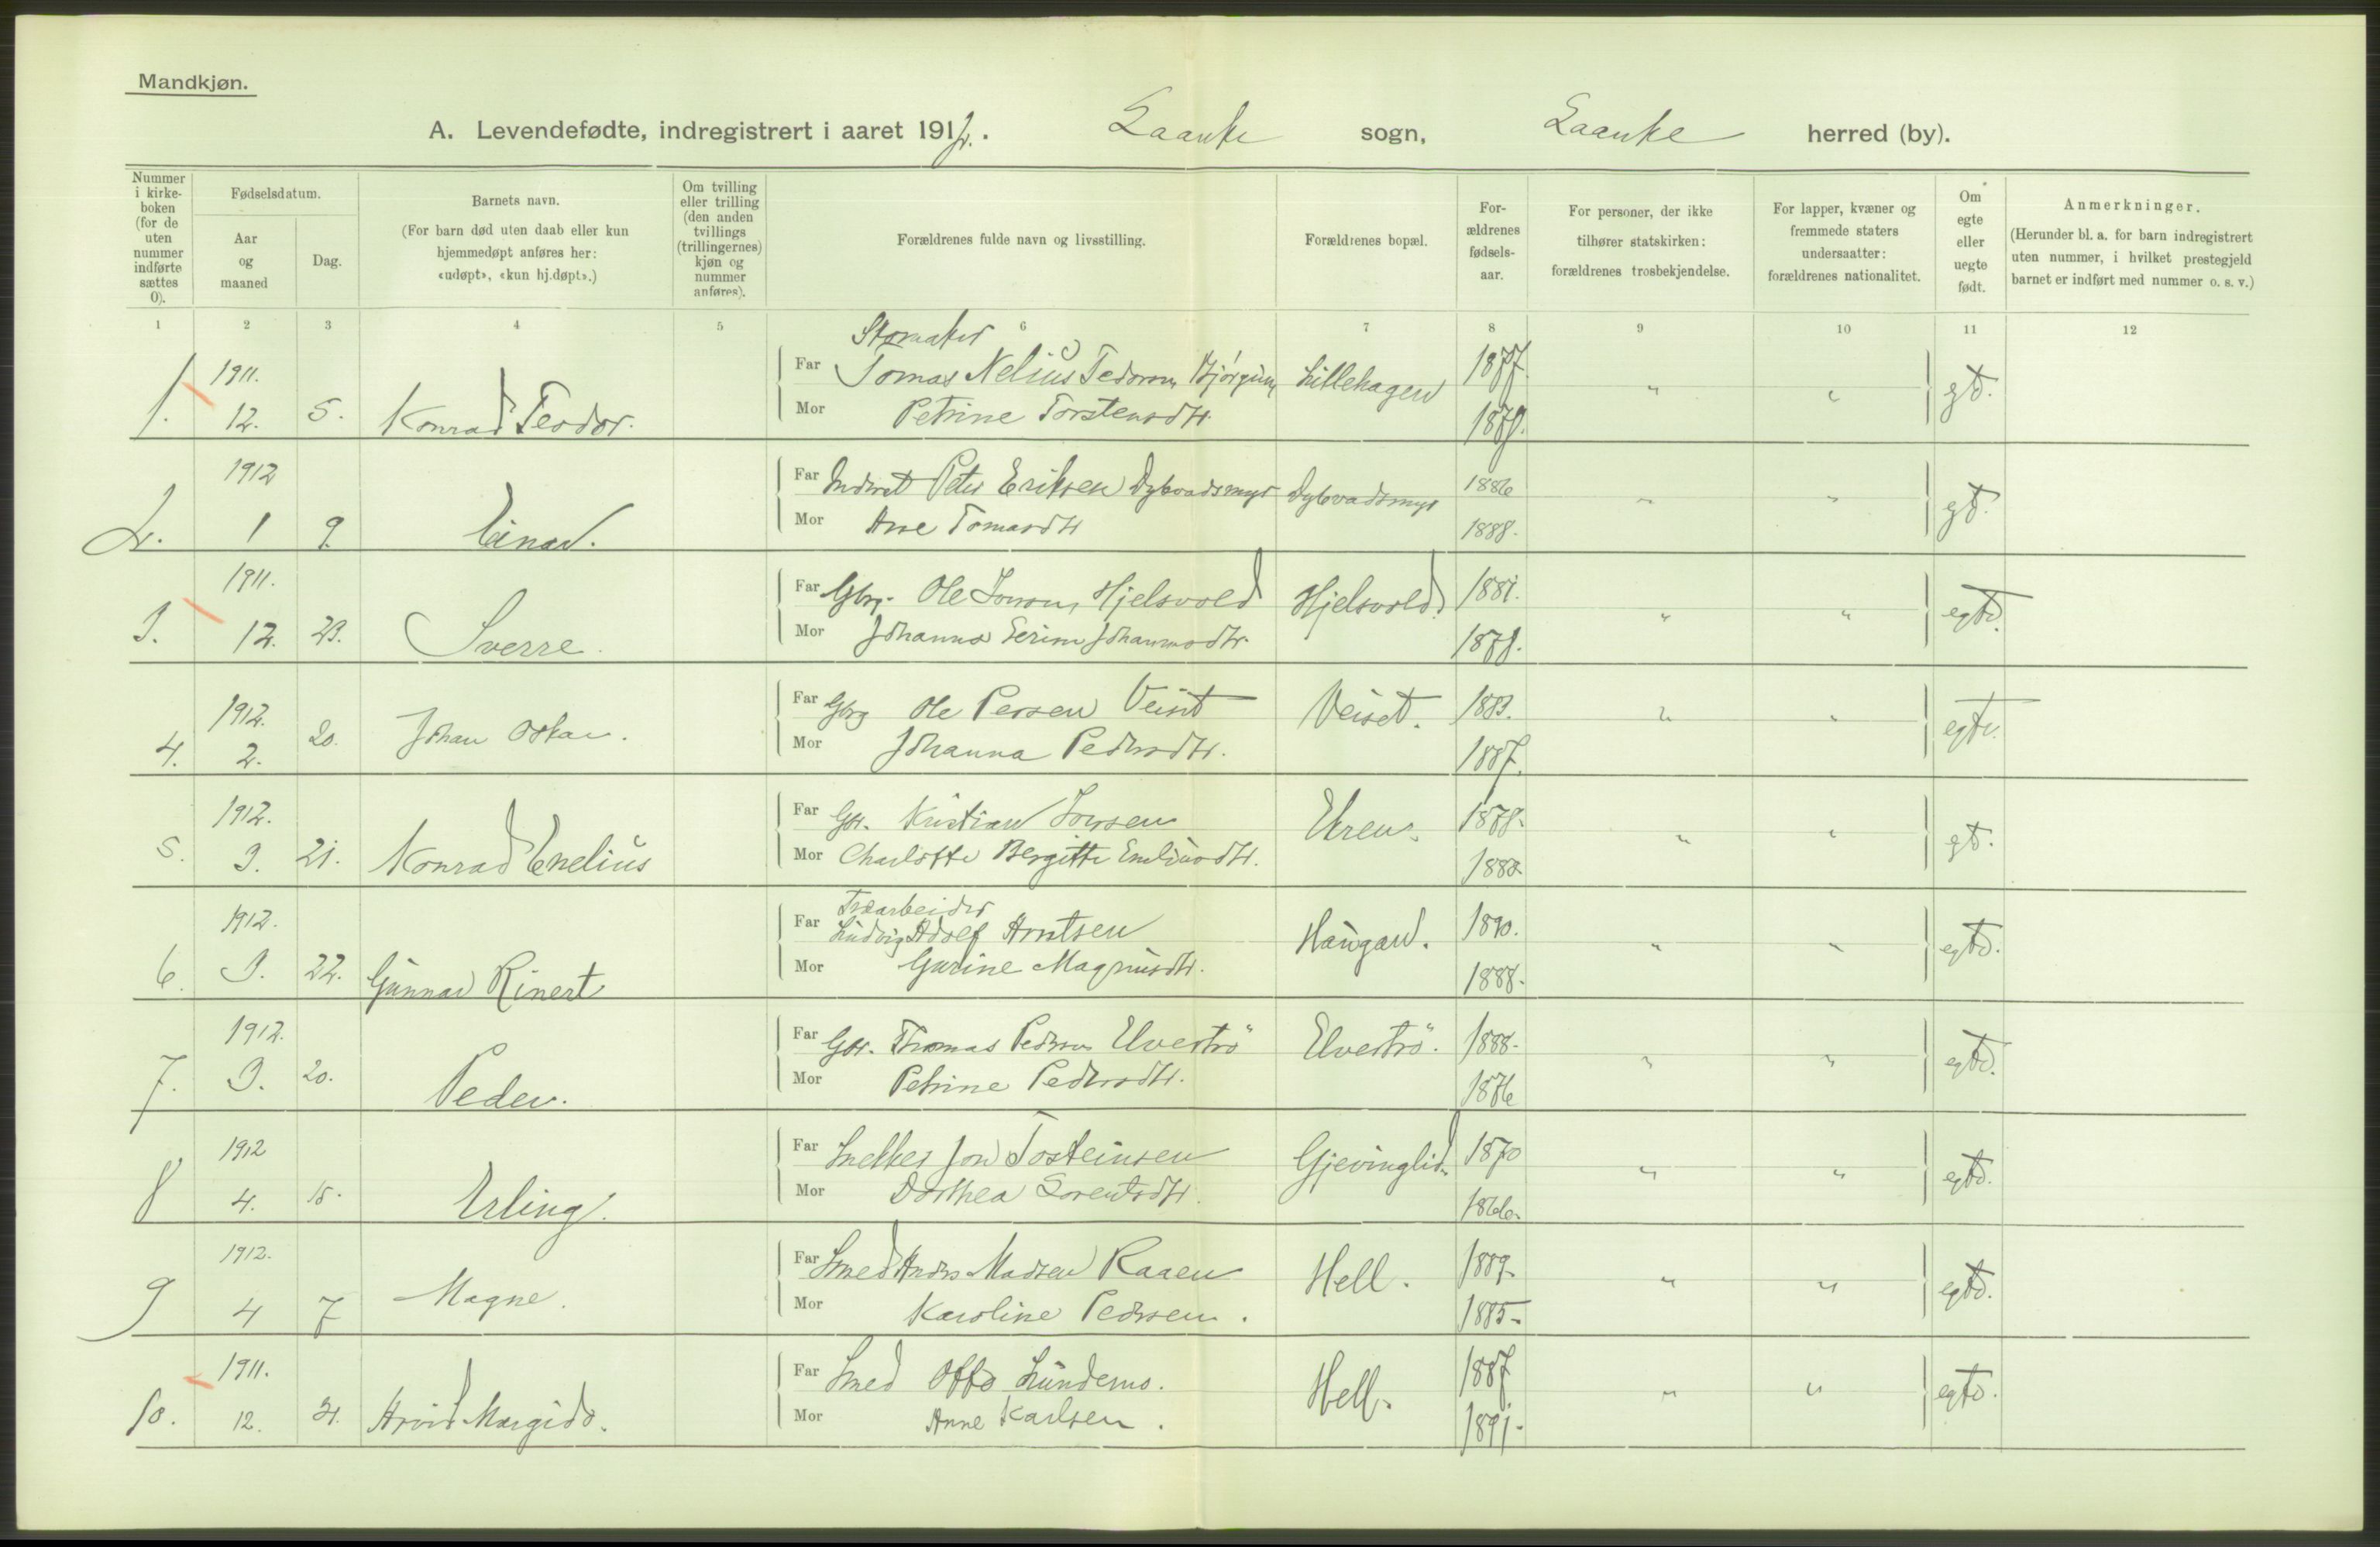 Mandkjøn.
A. Levendefødte, indregistrert i aaret 1912. Laanke sogn, Laanke herred (by).
Nummer i kirke-boken (for de uten nummer indførte sættes 0).
Fødselsdatum.
Aar og maaned
Dag.
Barnets navn.
(For barn død uten daab eller kun hjemmedøpt anføres her: «udøpt», «kun hj.døpt».)
Om tvilling eller trilling (den anden tvillings (trillingernes) kjøn og nummer anføres).
Forældrenes fulde navn og livsstilling.
Forældrenes bopæl.
For-ældrenes fødsels-aar.
For personer, der ikke tilhører statskirken: forældrenes trosbekjendelse.
For lapper, kvæner og fremmede staters undersaatter: forældrenes nationalitet.
Om egte eller uegte født.
Anmerkninger.
(Herunder bl. a. for barn indregistrert uten nummer, i hvilket prestegjeld barnet er indført med nummer o. s. v.)
1 2 3 4 5 6 7 8 9 10 11 12
1. 1911. 12. 5. Konrad Teodor.
Skomaker
Far Tomas Nelius Tedorsen Bjørgum Lillehagen 1877. " " gt.
Mor Petrine Torstensdtr. 1879.
2. 1912 1 9. Einar.
Far Peter Eriksen Dybvadsmyr Dybvadsmyr 1886 " " gt.
Mor Ane Tomasdtr 1888.
3. 1911. 12. 23. Sverre.
Far Gbrg. Ole Jonsen Hjelsvold Hjelsvold. 1881. " " egte.
Mor Johanna Serine Johannesdtr. 1879.
4. 1912. 2. 20. Johan Oskar.
Far Gbrg Ole Persen Veiset Veiset. 1883. " " egte.
Mor Johanna Pedersdtr. 1887.
5. 1912. 3. 21. Konrad Enelius
Far Gbr. Kristian Jonsen Elren. 1878. " " gt.
Mor Charlotte Bergitte Emiliusdtr. 1882.
6. 1912. 3. 22. Gunnar Rinert
Træarbeider
Far Ludvig Adolf Arntsen Haugan. 1890. " " egte.
Mor Gurine Magnusdtr. 1888.
7. 1912. 3. 20. Peder.
Far Gbr. Thomas Pedersen Elveströ Elveströ. 1888. " " egte.
Mor Petrine Pedersdtr. 1876
8 1912 4. 18. Erling.
Far Snelker Jon Tosteinsen Gjevinglid. 1870 " " egte.
Mor Dorthea Lorentsdtr. 1866.
9 1912. 4 7 Magne.
Far Smed Anders Madsen Raaen Hell. 1889. " " egte.
Mor Karoline Pedersen. 1885.
10. 1911. 12. 31. Arvid Margido.
Far Smed Otto Lundemo. Hell. 1887 " " egte.
Mor Anne Karlsen. 1891.